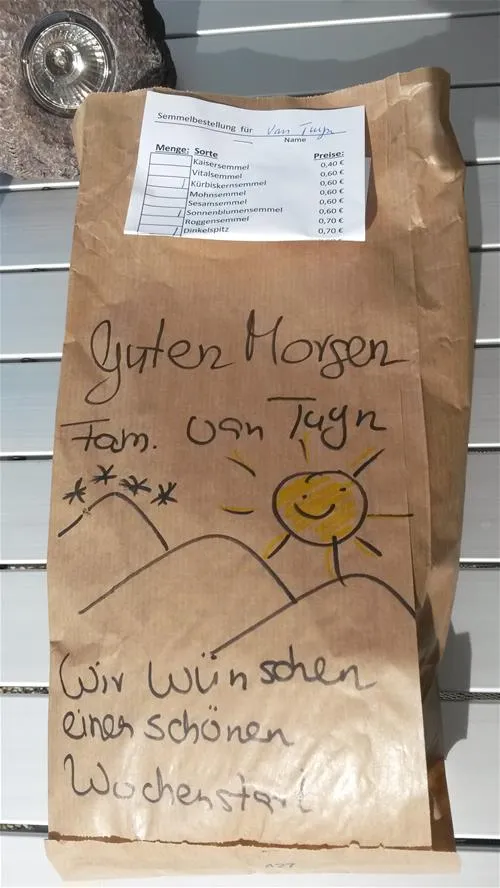 Semmelbestellung für Van Tuyn
Name
Menge: Sorte Preise:
Kaisersemmel 0,40 €
Vitalsemmel 0,60 €
/ Kürbiskernsemmel 0,60 €
Mohnsemmel 0,60 €
Sesamsemmel 0,60 €
/ Sonnenblumensemmel 0,60 €
Roggensemmel 0,70 €
/ Dinkelspitz 0,70 €
Guten Morgen
Fam. van Tuyn
Wir wünschen
einen schönen
Wochenstart